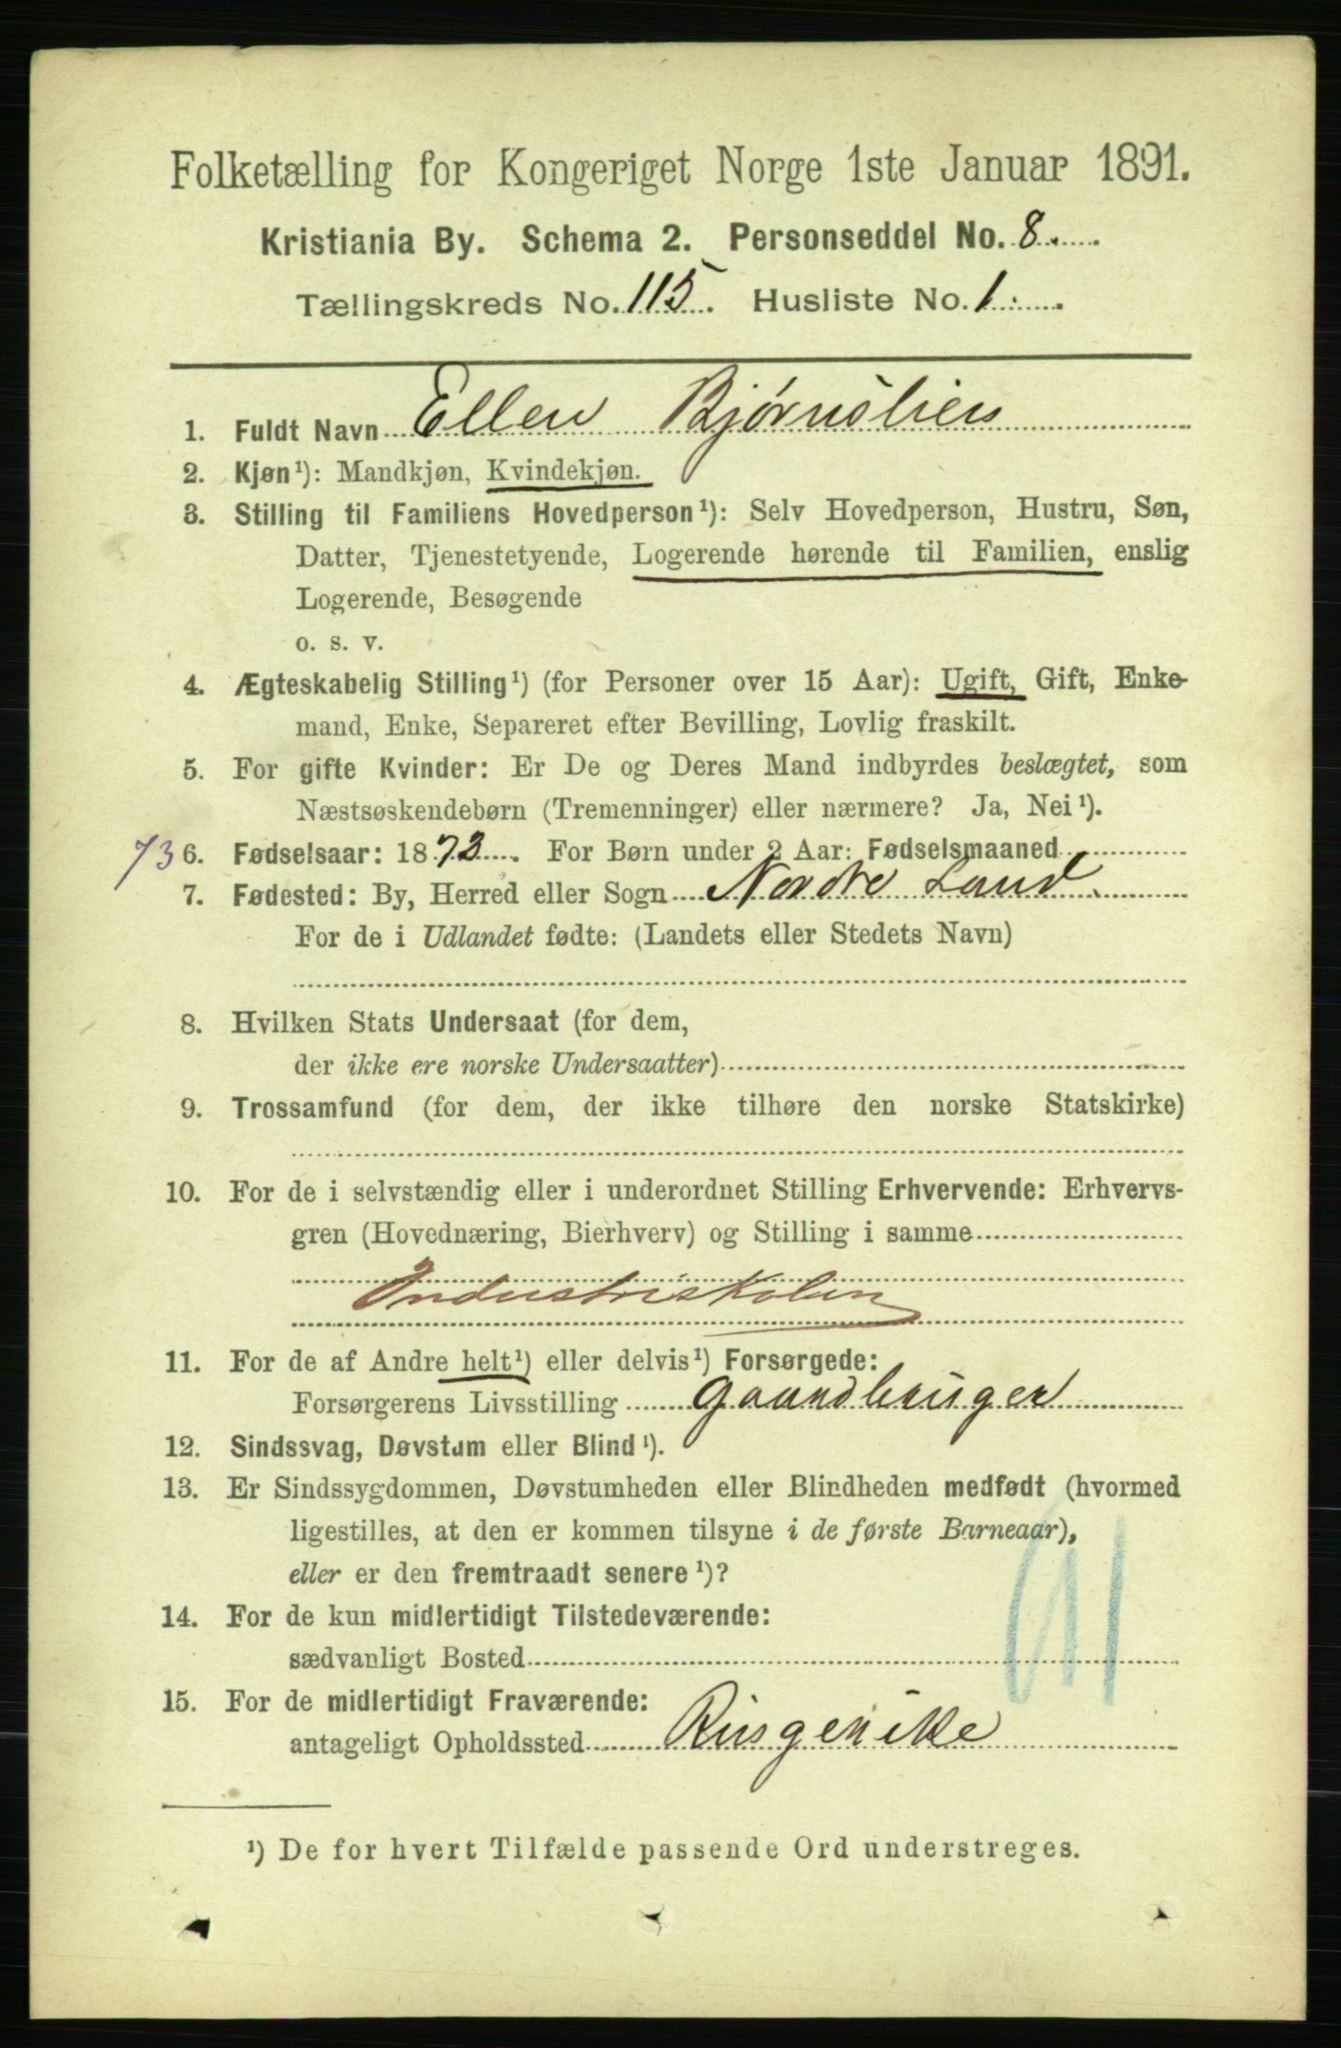 Folketælling for Kongeriget Norge 1ste Januar 1891.
Kristiania By. Schema 2. Personseddel No. 8.
Tællingskreds No. 115. Husliste No. 1.
1. Fuldt Navn Ellen Bjørnslien
2. Kjøn¹): Mandkjøn, Kvindekjøn.
3. Stilling til Familiens Hovedperson¹): Selv Hovedperson, Hustru, Søn,
Datter, Tjenestetyende, Logerende hørende til Familien, enslig
Logerende, Besøgende
o. s. v.
4. Ægteskabelig Stilling¹) (for Personer over 15 Aar): Ugift, Gift, Enke-
mand, Enke, Separeret efter Bevilling, Lovlig fraskilt.
5. For gifte Kvinder: Er De og Deres Mand indbyrdes beslægtet, som
Næstsøskendebørn (Tremenninger) eller nærmere? Ja, Nei¹).
73 6. Fødselsaar: 1873. For Børn under 2 Aar: Fødselsmaaned
7. Fødested: By, Herred eller Sogn Nordre Land.
For de i Udlandet fødte: (Landets eller Stedets Navn)
8. Hvilken Stats Undersaat (for dem,
der ikke ere norske Undersaatter)
9. Trossamfund (for dem, der ikke tilhøre den norske Statskirke)
10. For de i selvstændig eller i underordnet Stilling Erhvervende: Erhvervs-
gren (Hovednæring, Bierhverv) og Stilling i samme
Industriskolen
11. For de af Andre helt¹) eller delvis¹) Forsørgede:
Forsørgerens Livsstilling Gaardbruger
12. Sindssvag, Døvstum eller Blind¹).
13. Er Sindssygdommen, Døvstumheden eller Blindheden medfødt (hvormed
ligestilles, at den er kommen tilsyne i de første Barneaar),
eller er den fremtraadt senere¹)?
14. For de kun midlertidigt Tilstedeværende:
sædvanligt Bosted
15. For de midlertidigt Fraværende:
antageligt Opholdssted
¹) De for hvert Tilfælde passende Ord understreges.